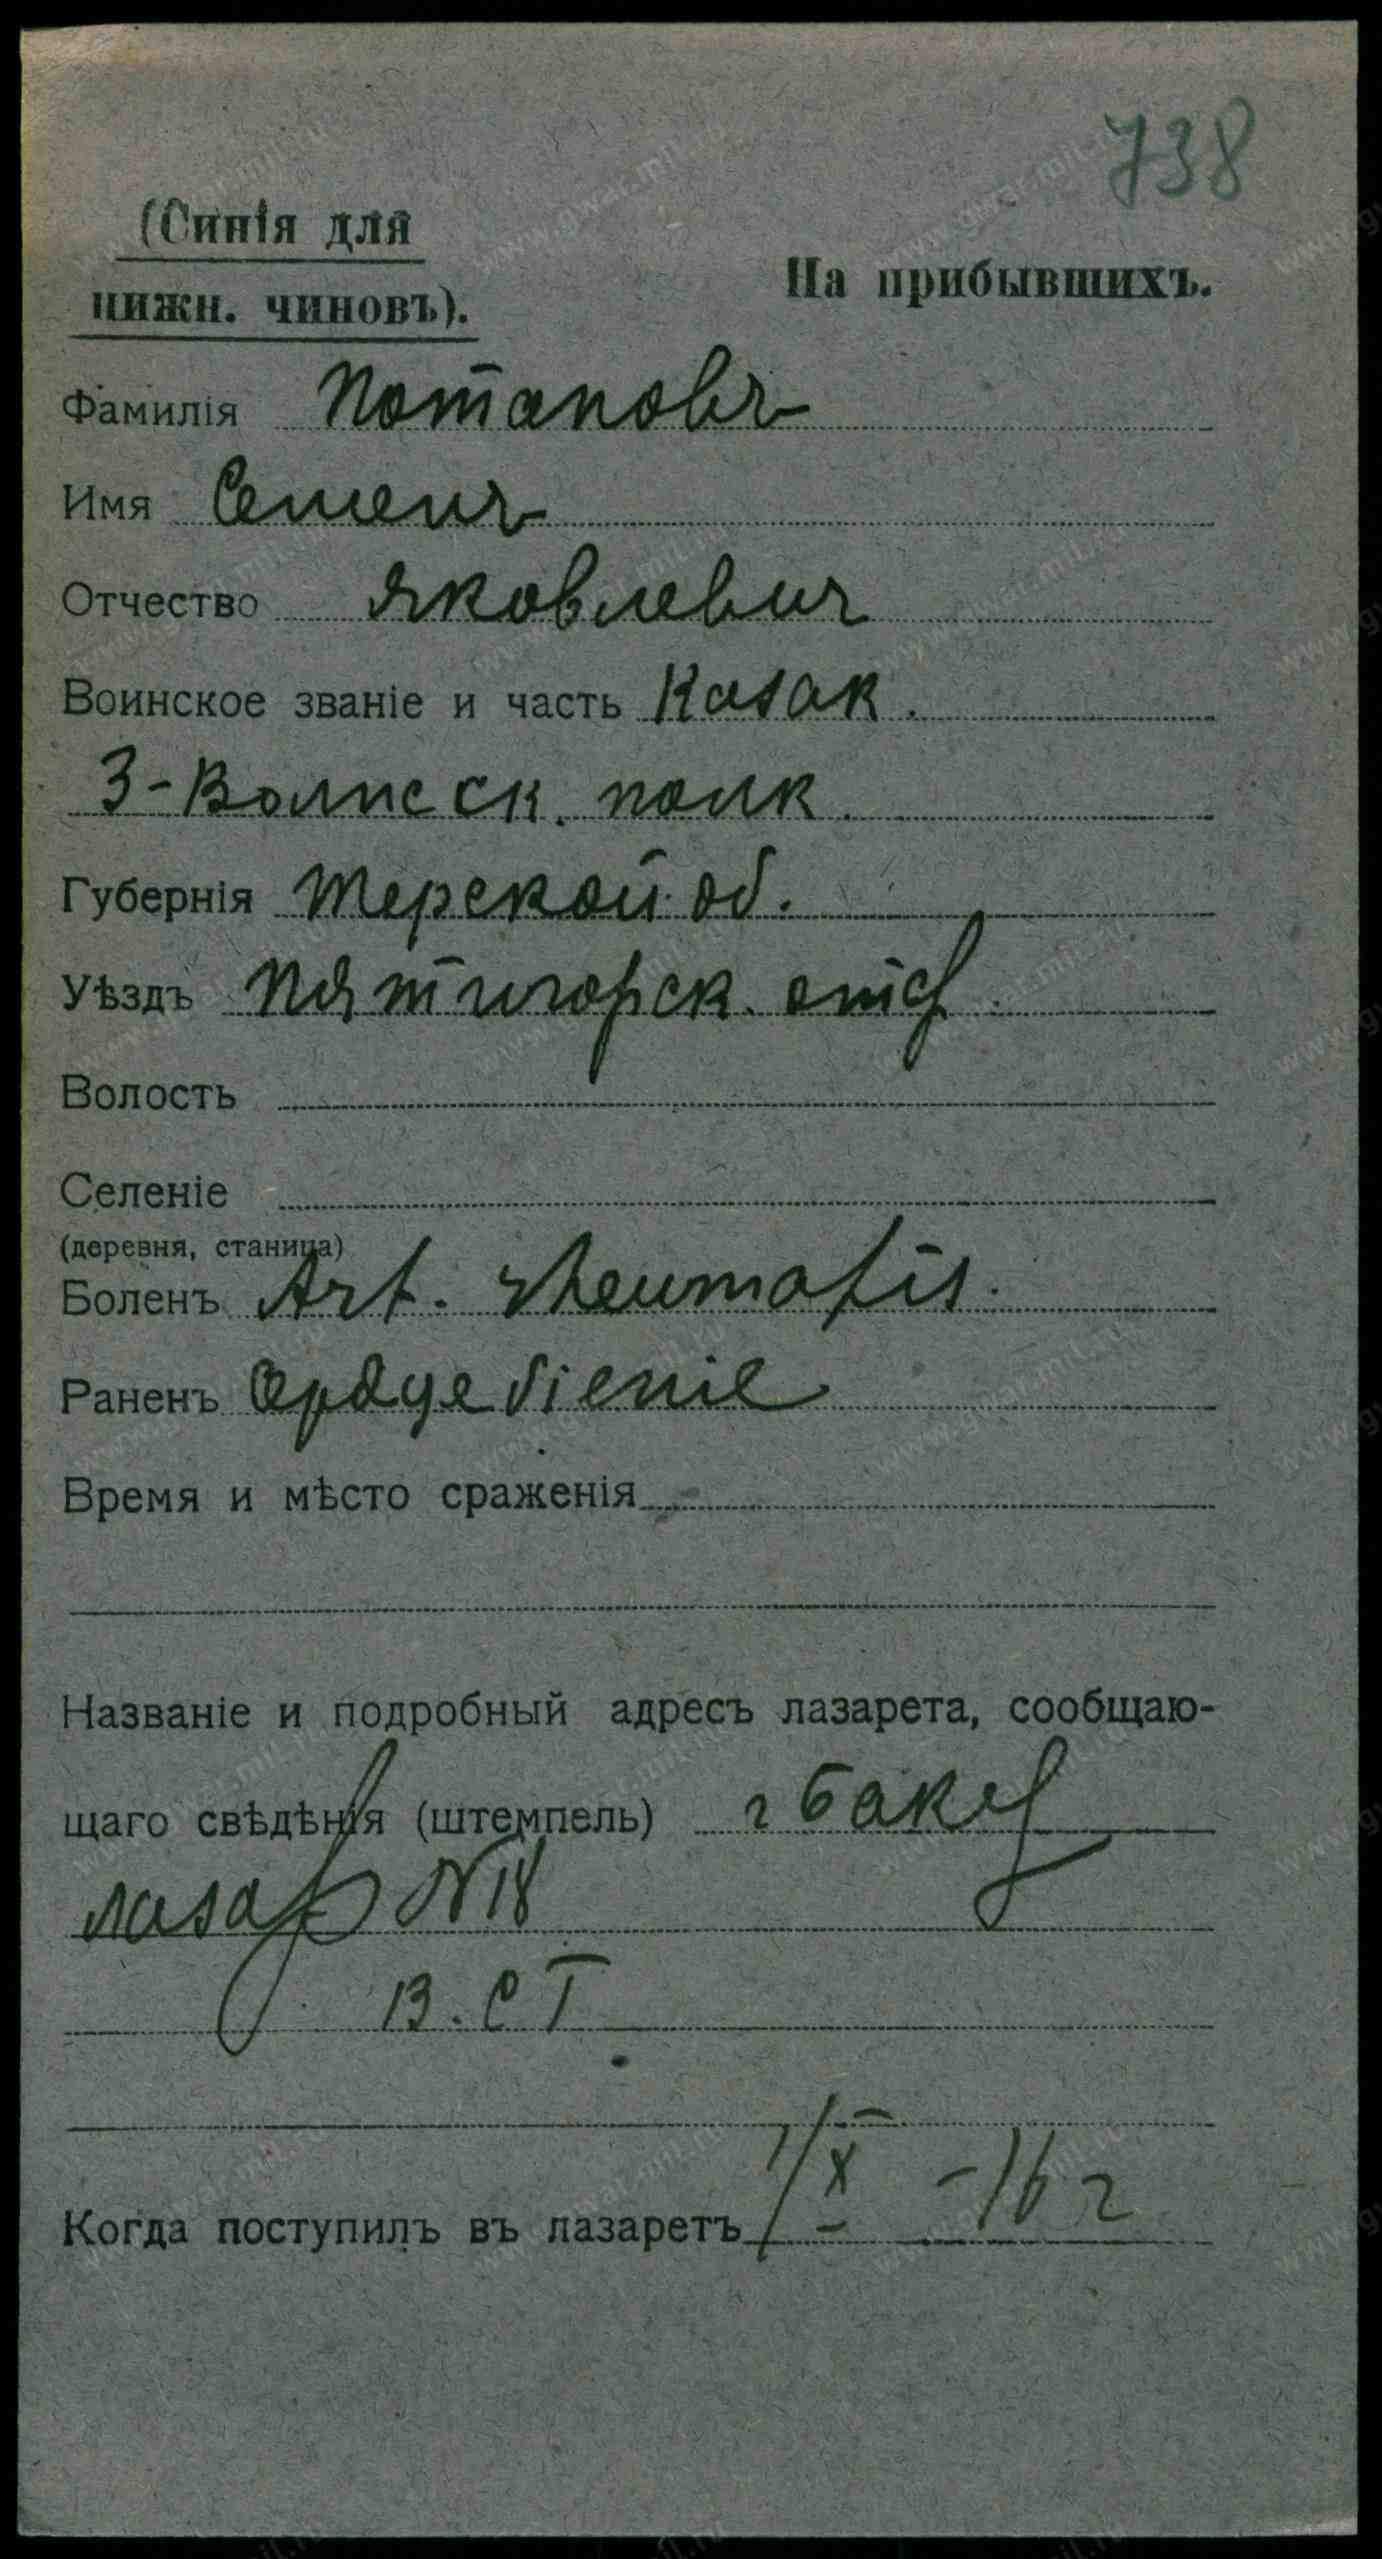 738
(Синія для
нижн. чиновъ).
На прибывшихъ.
Фамилія Потаповъ
Имя Семенъ
Отчество Яковлевич
Воинское званіе и часть Казак.
3-Волгск. полк.
Губернія Терской об.
Уѣздъ Пятигорск. отд.
Волость
Селеніе
(деревня, станица)
Боленъ Art. rheumatis.
Раненъ
Время и мѣсто сраженія
Названіе и подробный адресъ лазарета, сообщаю-
щаго свѣдѣнія (штемпель) г Баку
лазар N18
В. С Г
Когда поступилъ въ лазаретъ 1/X -16 г